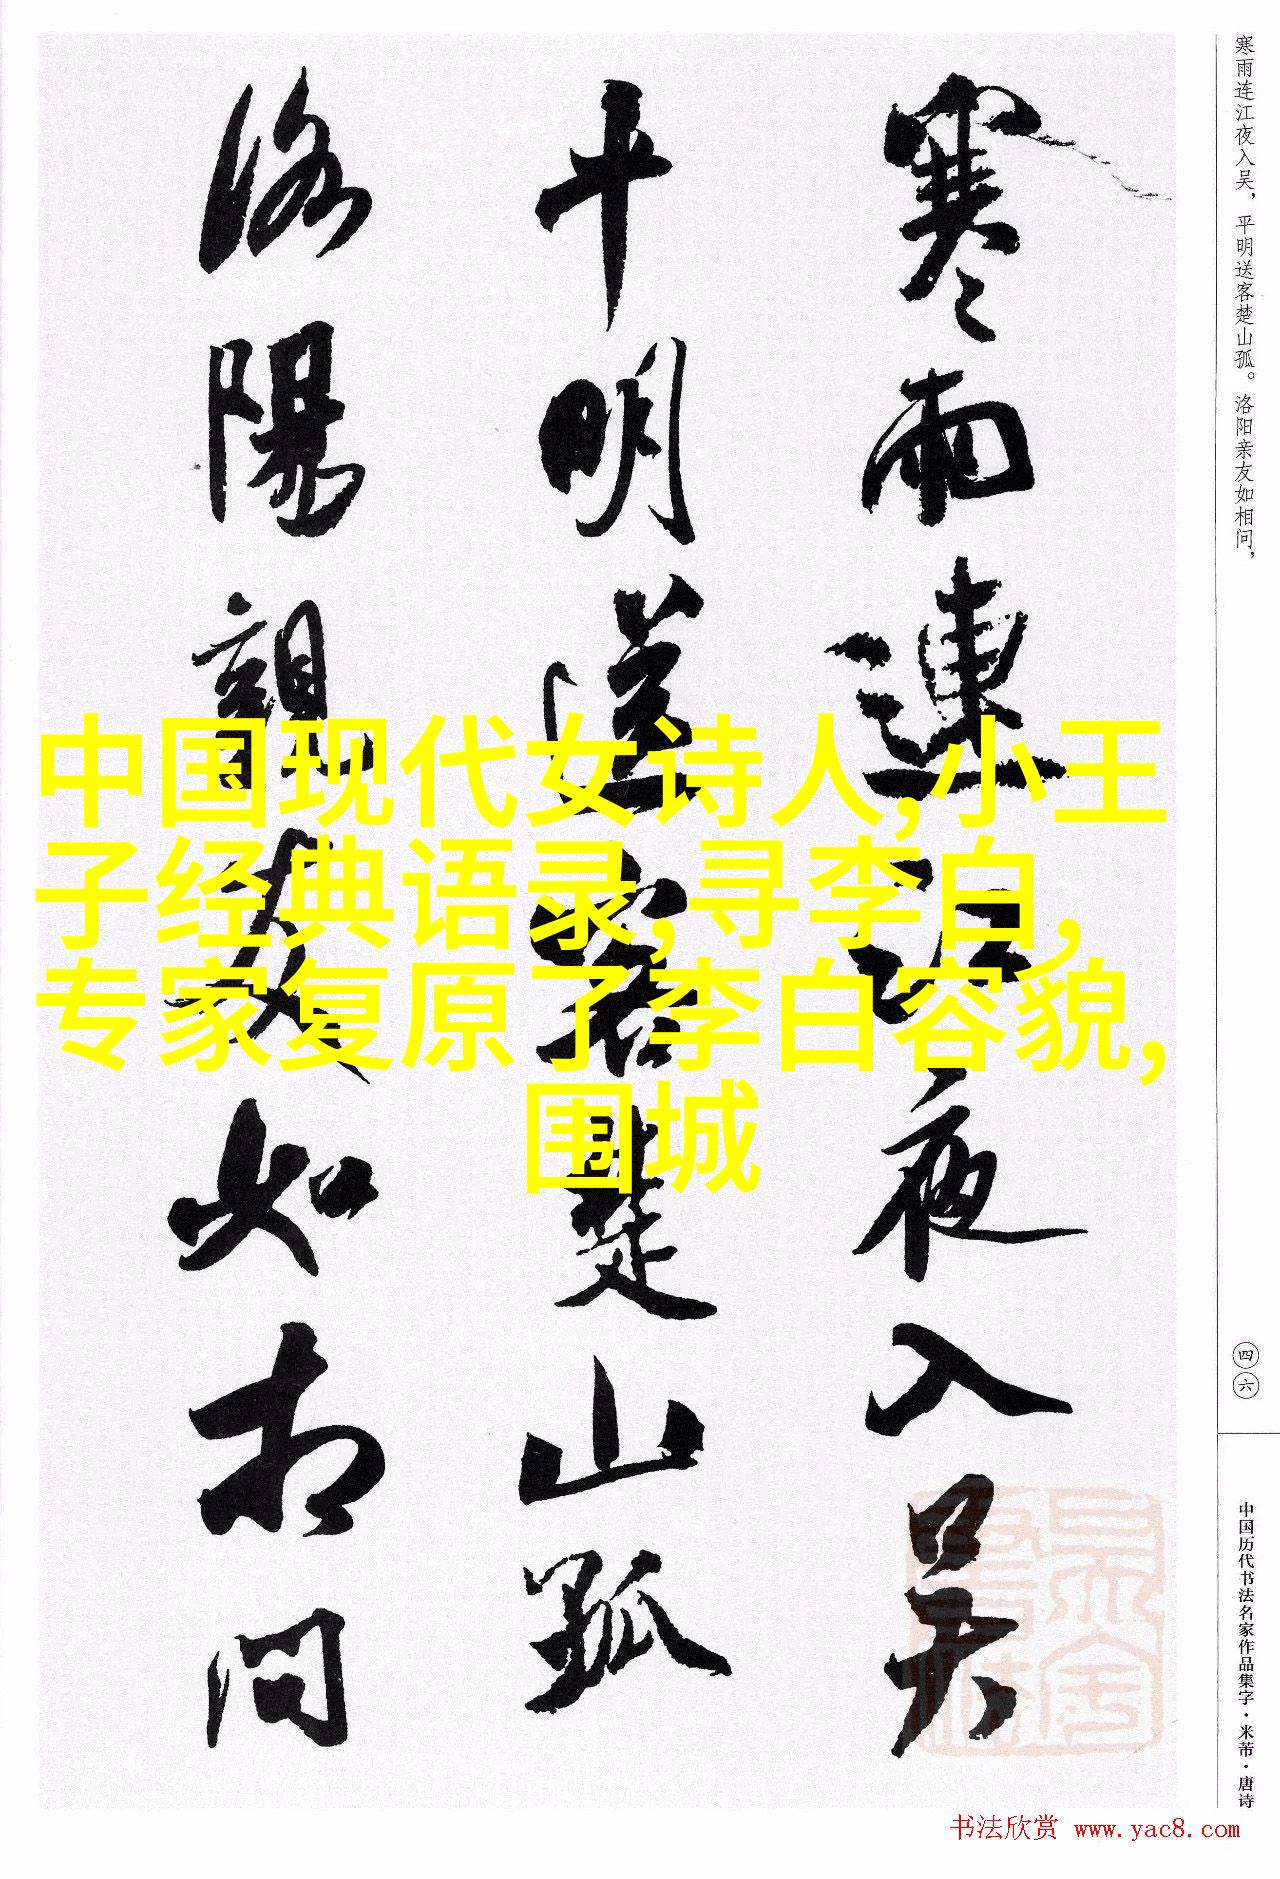 寒雨连江夜入吴，平明送客楚山孤。洛阳亲友如相问，
四六
中国历代书法名家作品集字·米芾·唐诗
寒雨連江夜入吴
平明送客楚山孤
洛陽親友如相問
中国现代女诗人,小王
子经典语录,寻李白,
专家复原了李白容貌,
围城
书法欣赏 www.yac8.com